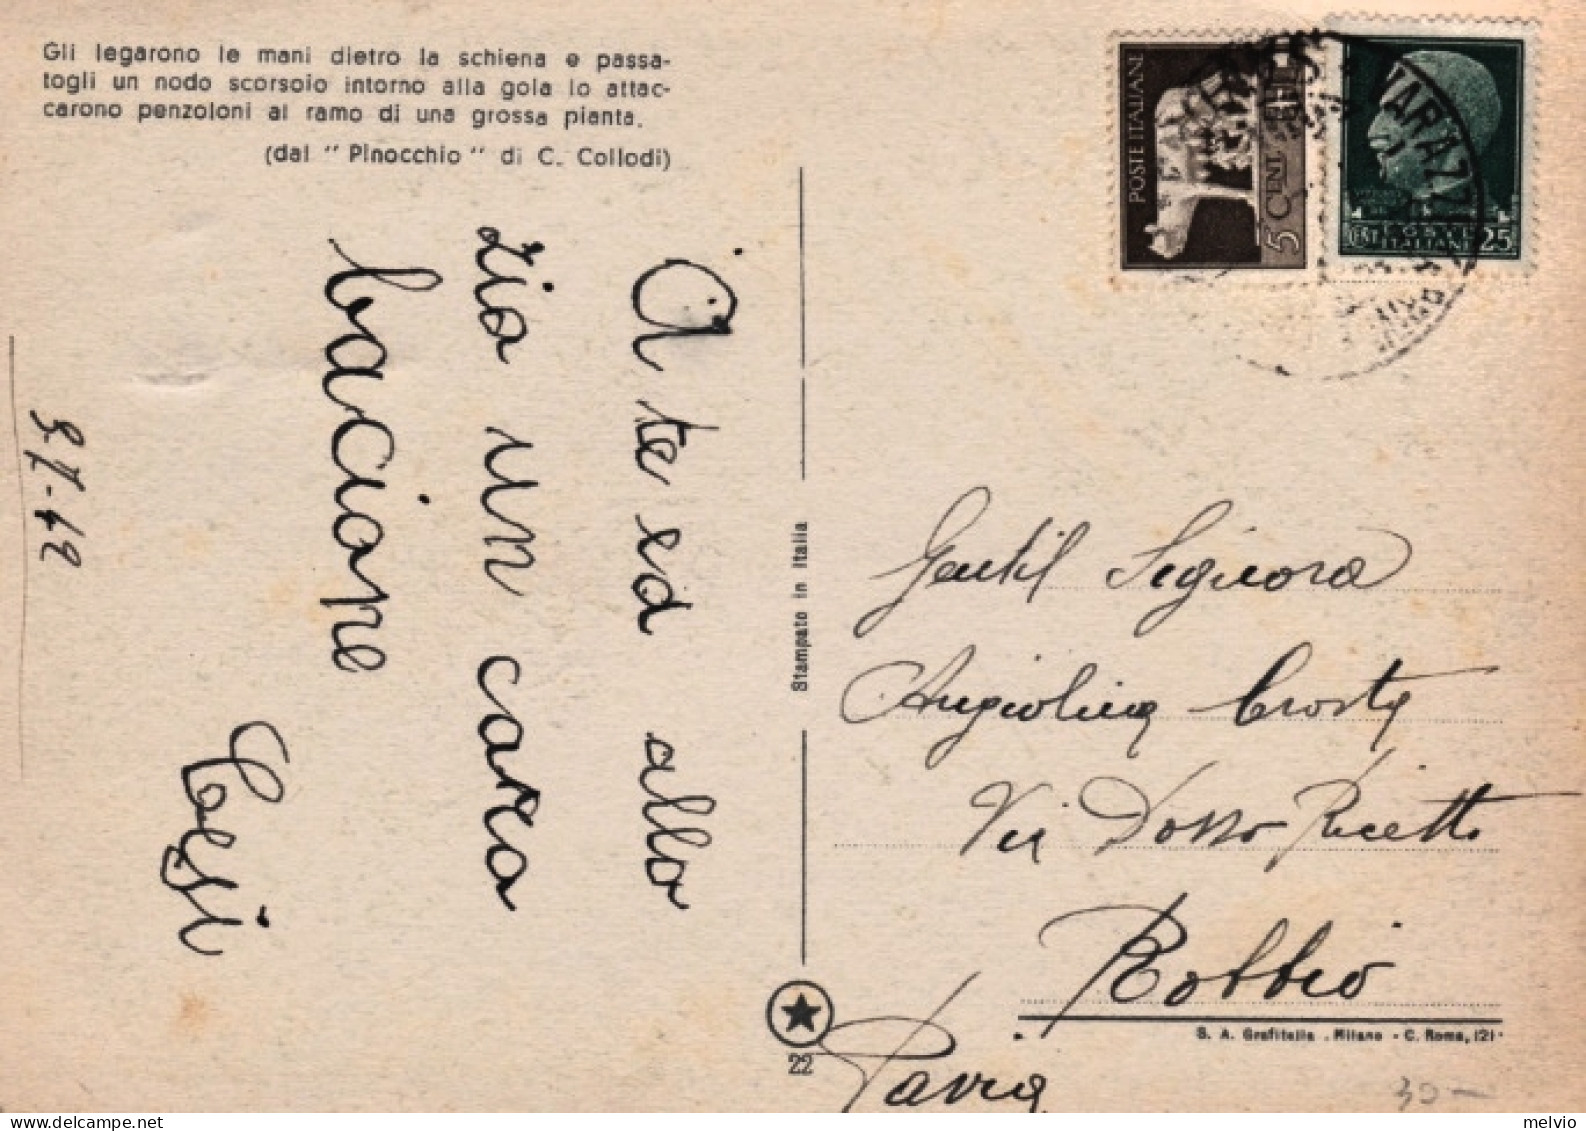 Gli legarono le mani dietro la schiena e passa-
togli un nodo scorsoio intorno alla gola lo attac-
carono penzoloni al ramo di una grossa pianta.
(dal " Pinocchio " di C. Collodi)
A te ed allo
zio un cara
bacione
Cesi
POSTE ITALIANE
5 CENT
VARAZZ
CENT. POSTE ITALIANE 25
Stampato in Italia
Gentil Signora
Angiolina Crosta
Via Dosso Ricetto
Robbio
Pavia
22
S. A. Grafitalia . Milano - C. Roma, 121
30-
melvio